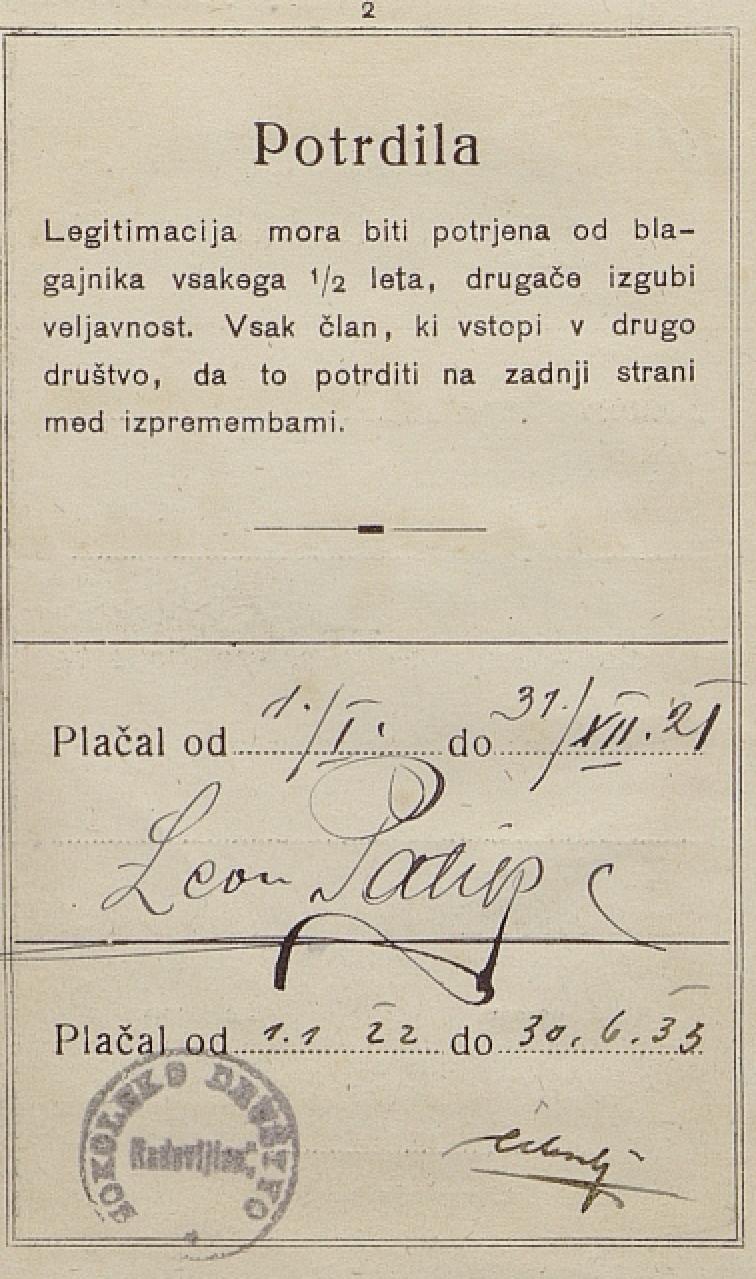 2
Potrdila
Legitimacija mora biti potrjena od bla-
gajnika vsakega 1/2 leta, drugače izgubi
veljavnost. Vsak član, ki vstopi v drugo
društvo, da to potrditi na zadnji strani
med izpremembami.
Plačal od 1./I. do 31./XII. 21
Leon
Plačal od 1.1 22 do 30.6.35
SOKOLSKO DRUŠTVO